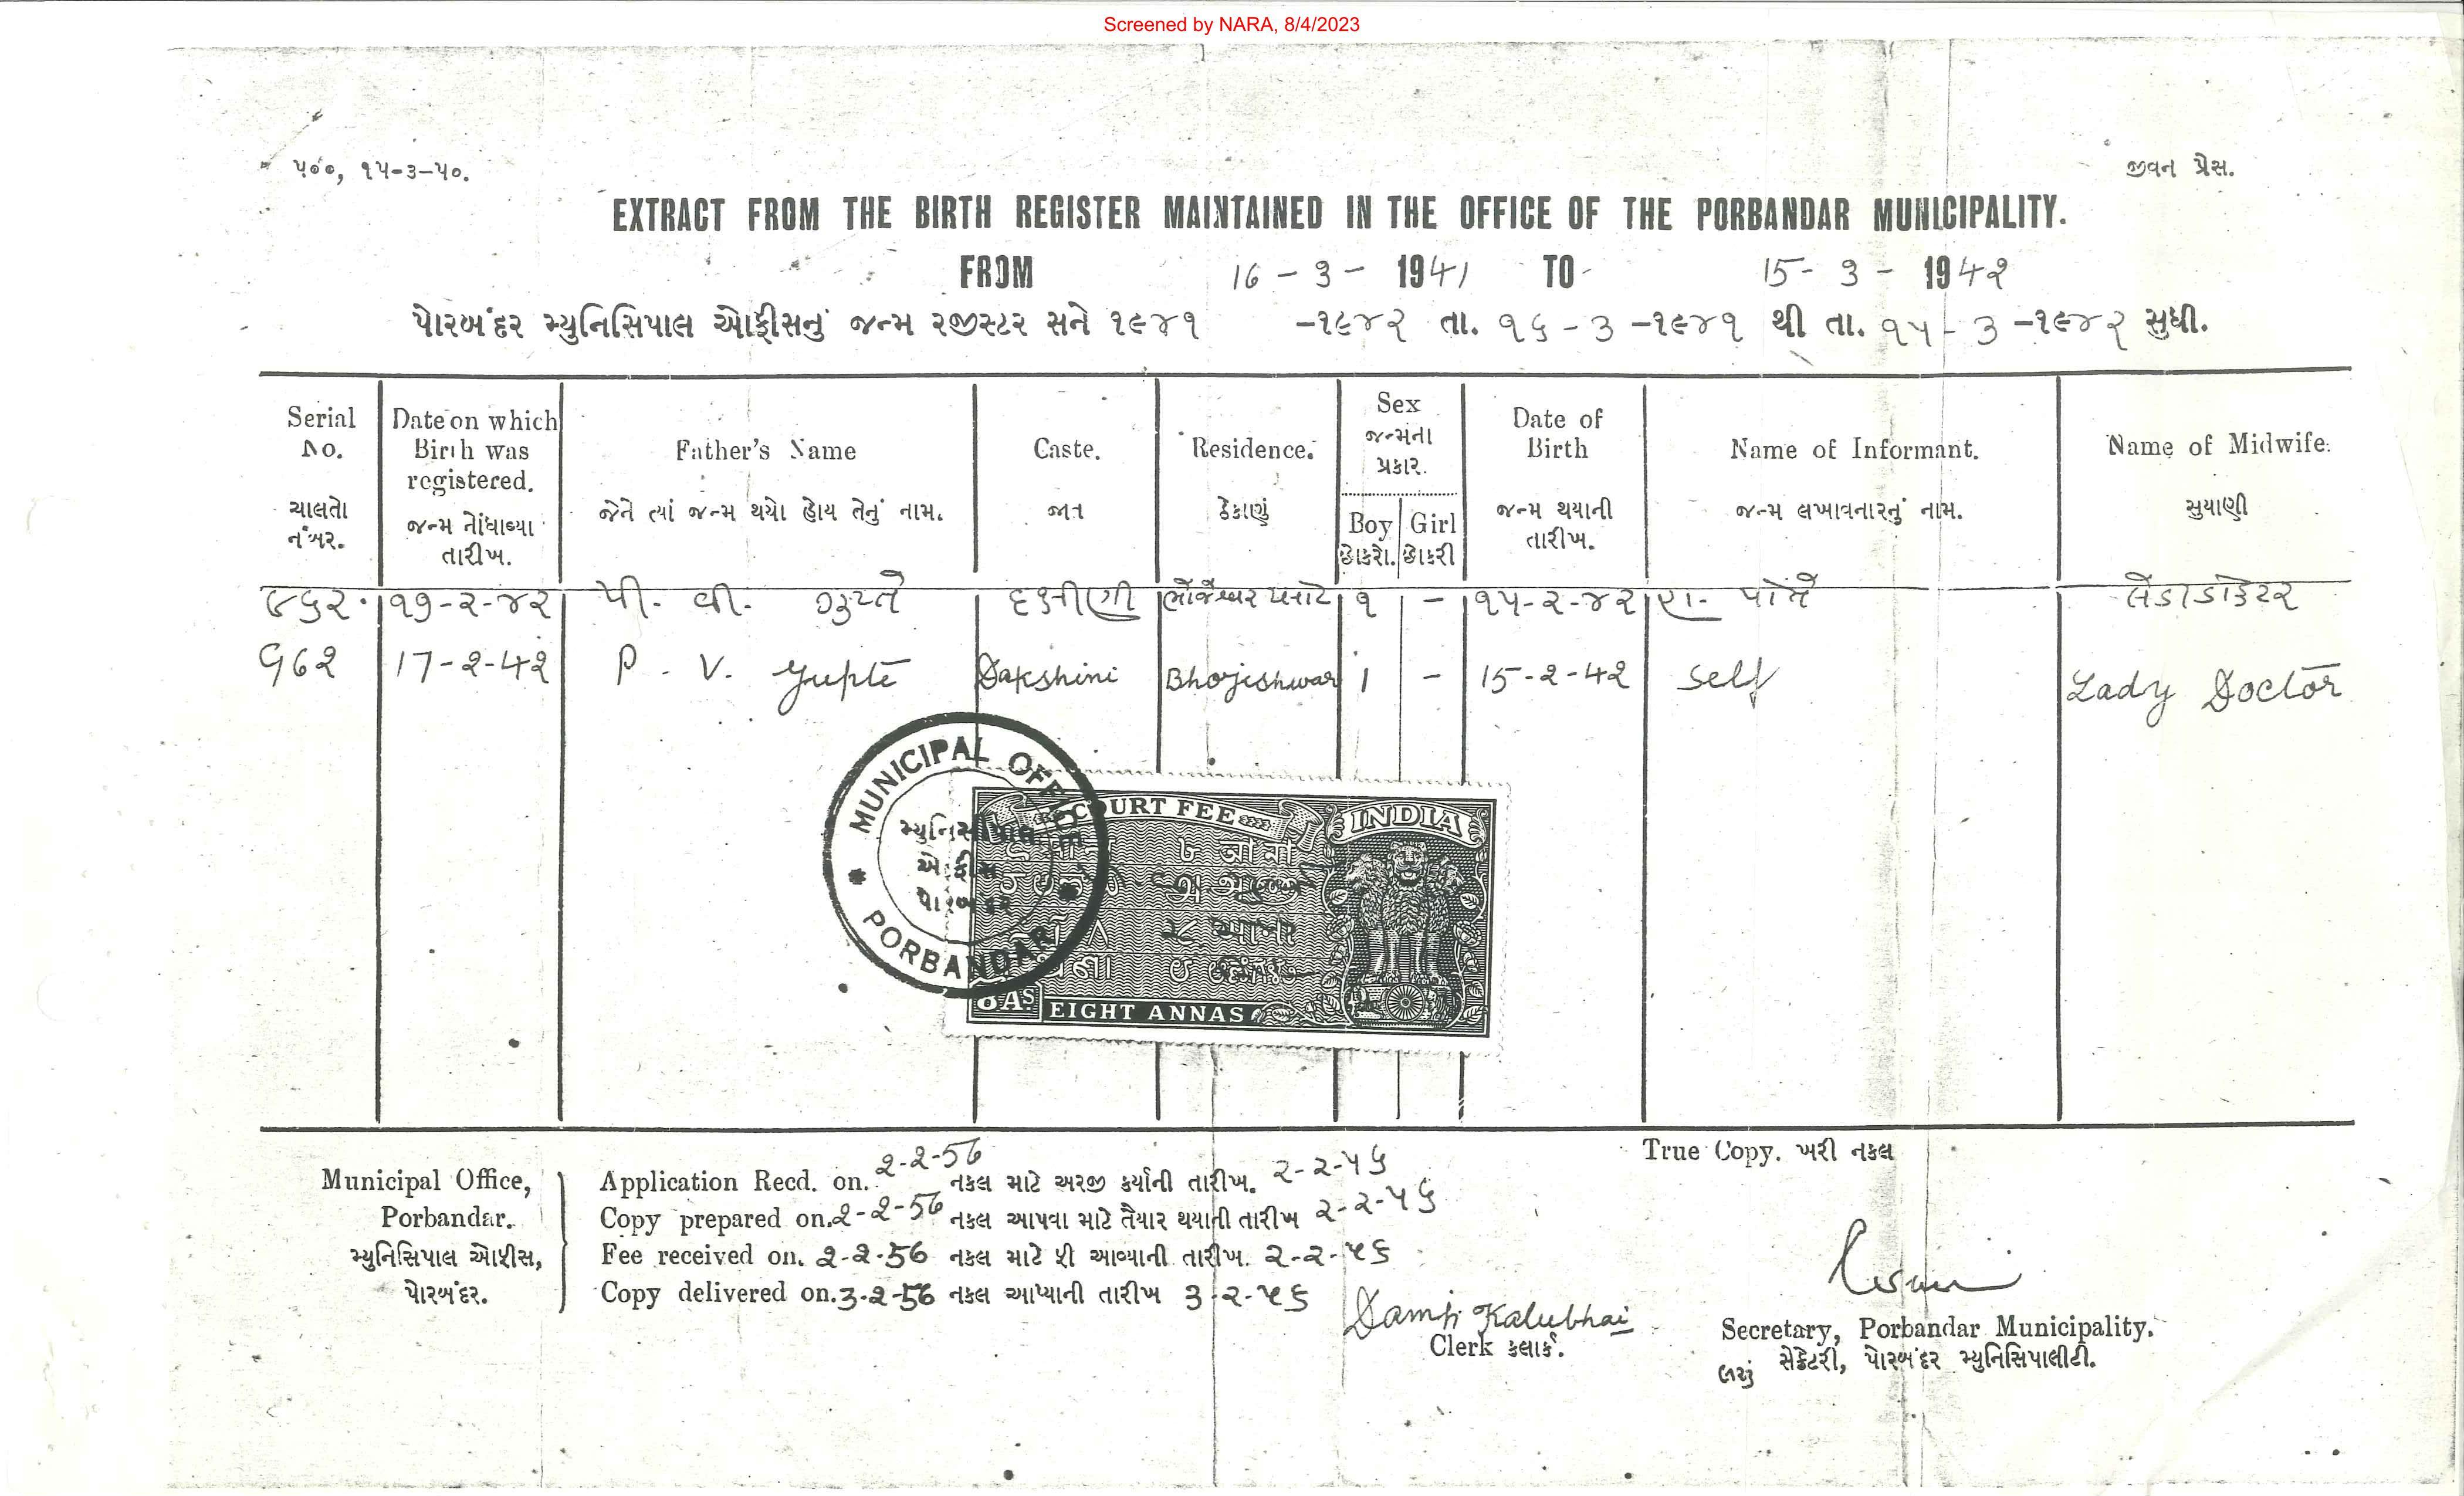 Screened by NARA, 8/4/2023
૫૦૦, ૧૫-૩-૫૦.
જીવન પ્રેસ.
EXTRACT FROM THE BIRTH REGISTER MAINTAINED IN THE OFFICE OF THE PORBANDAR MUNICIPALITY.
FROM 16 - 3 - 1941 TO 15 - 3 - 1942
પોરબંદર મ્યુનિસિપાલ ઓફીસનું જન્મ રજીસ્ટર સને ૧૯૪૧ -૧૯૪૨ તા. ૧૬ - ૩ -૧૯૪૧ થી તા. ૧૫ - ૩ -૧૯૪૨ સુધી.
Serial No. ચાલતો નંબર.
Date on which Birth was registered. જન્મ નોંધાવ્યા તારીખ.
Father's Name જેને ત્યાં જન્મ થયો હોય તેનું નામ.
Caste. જાત
Residence. ઠેકાણું
Sex જન્મના પ્રકાર. Boy છોકરો. Girl છોકરી
Date of Birth જન્મ થયાની તારીખ.
Name of Informant. જન્મ લખાવનારનું નામ.
Name of Midwife. સુયાણી
૯૬૨. ૧૭-૨-૪૨ પી. વી. ગુપ્તે દક્ષીણી ભોજેશ્વર ૧ - ૧૫-૨-૪૨ પોતે લેડી ડોકટર
962 17-2-42 P. V. Gupte Dakshini Bhojeshwar 1 - 15-2-42 Self Lady Doctor
MUNICIPAL OFFICE
મ્યુનિસીપાલ
ઓફીસ
પોરબંદર
PORBANDAR
COURT FEE INDIA
૮ આના
8 AS EIGHT ANNAS
True Copy. ખરી નકલ
Municipal Office,
Porbandar.
મ્યુનિસિપાલ ઓફીસ,
પોરબંદર.
Application Recd. on. 2-2-56 નકલ માટે અરજી કર્યાની તારીખ. ૨-૨-૫૬
Copy prepared on. 2-2-56 નકલ આપવા માટે તૈયાર થયાની તારીખ ૨-૨-૫૬
Fee received on. 2-2-56 નકલ માટે ફી આવ્યાની તારીખ. ૨-૨-૫૬
Copy delivered on. 3-2-56 નકલ આપ્યાની તારીખ ૩-૨-૫૬
Damji Kalubhai
Clerk કલાર્ક.
Secretary, Porbandar Municipality.
સેક્રેટરી, પોરબંદર મ્યુનિસિપાલીટી.